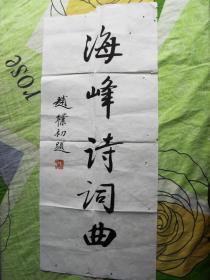 海峰诗词曲
赵朴初题
rose